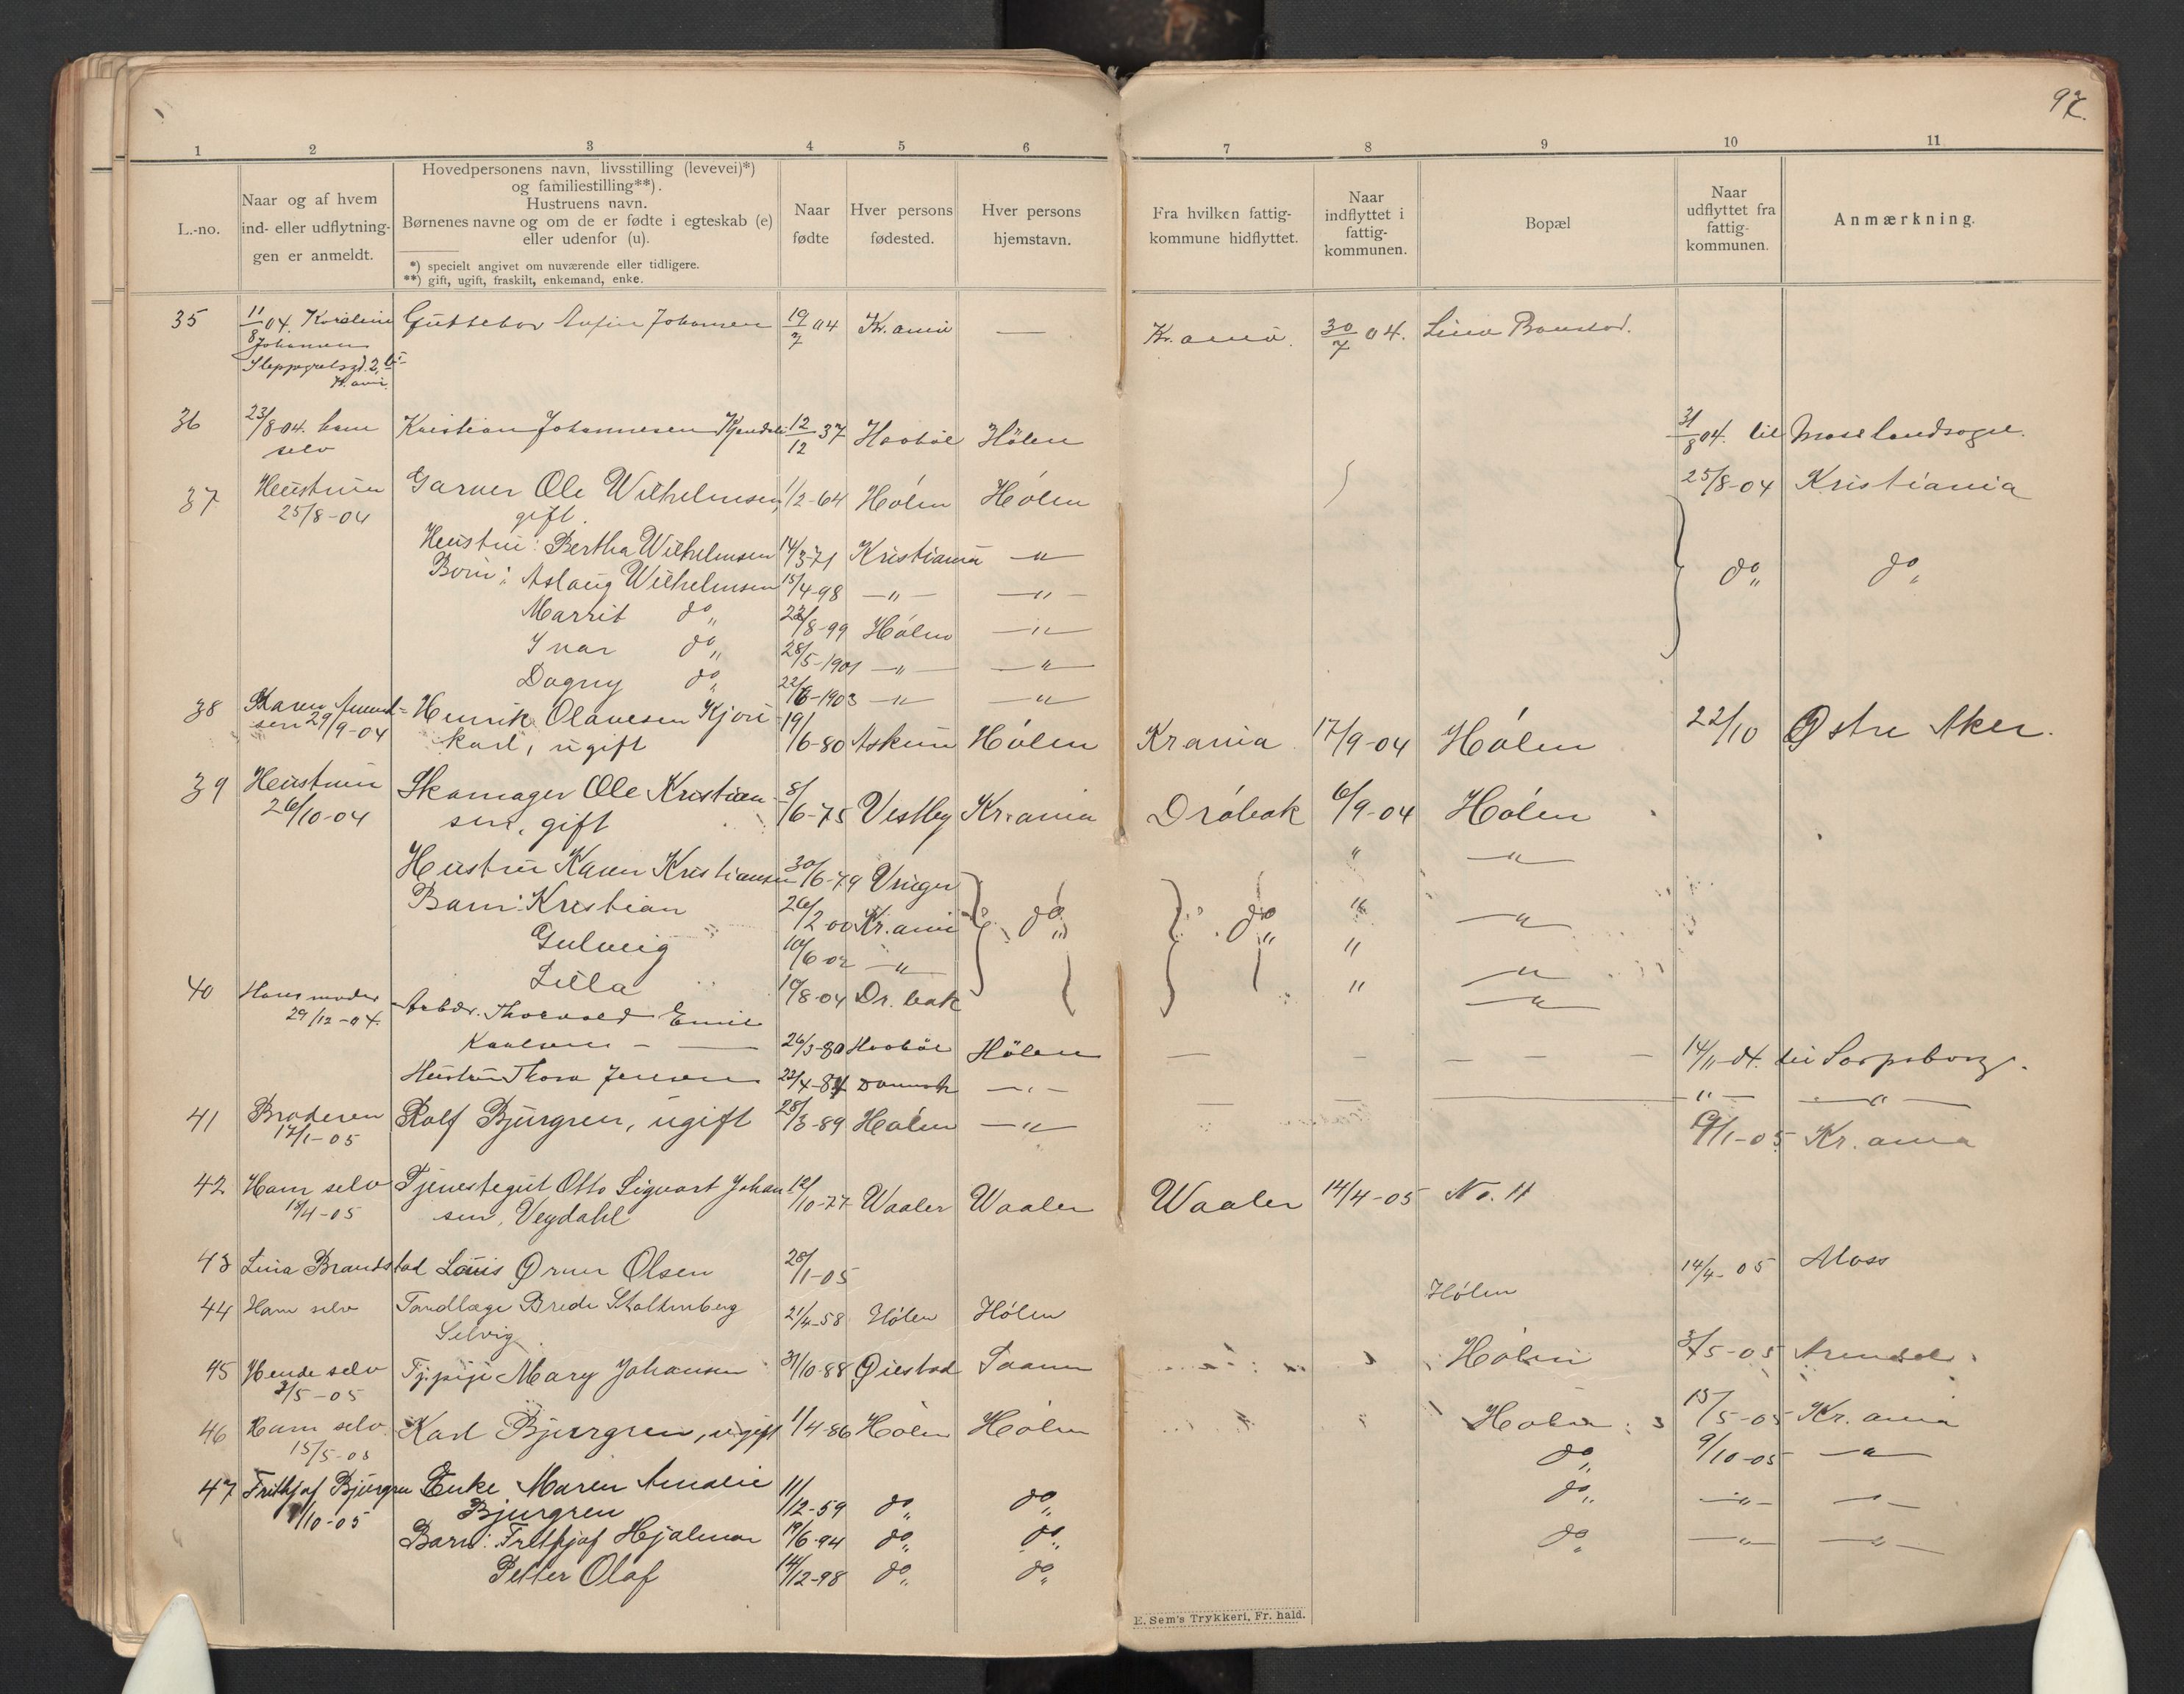 97.
1 2 3 4 5 6 7 8 9 10 11
L.-no.
Naar og af hvem
ind- eller udflytnin-
gen er anmeldt.
Hovedpersonens navn, livsstilling (levevei)*)
og familiestilling**).
Hustruens navn.
Børnenes navne og om de er fødte i egteskab (e)
eller udenfor (u).
*) specielt angivet om nuværende eller tidligere.
**) gift, ugift, fraskilt, enkemand, enke.
Naar
fødte
Hver persons
fødested.
Hver persons
hjemstavn.
Fra hvilken fattig-
kommune hidflyttet.
Naar
indflyttet i
fattig-
kommunen.
Bopæl
Naar
udflyttet fra
fattig-
kommunen.
Anmærkning.
35 11/8 04. Karoline Guttebar Johansen 19/7 04 Kr.ania — Kr.ania. 30/7 04. Lina Brandstad.
Johansen
2, Kr.ania.
36 23/8 04. ham Kristian Johannesen 12/12 37 Haabøl Hölen 31/8 04. til Moss landsogn.
selv
37 Hustruen Garver Ole Wilhelmsen, 1/2-64 Hólen Hólen 25/8-04 Kristiania
25/8-04 gift.
Hustru: Bertha Wilhelmsen 14/3-71 Kristiania —"—
Børn: Aslaug Wilhelmsen 15/4-98 —"— —"— do„ do„
Marrit do„ 22/8-99 Hólen —"—
Ivar do„ 28/5-1901 —"— —"—
Dagny do„ 22/6-1903 —"— —"—
38 Karen Amund- Henrik Olavesen Kjøre- 19/6-80 Askim Hólen Krania 17/9-04 Hólen 22/10 Østre Aker.
sen 29/9-04 karl, ugift
39 Hustruen Skomager Ole Kristian- 8/6-75 Vestby Kr.ania Dróbak 6/9-04 Hólen
26/10-04 sen, gift
Hustru Karen Kristiansen 30/6-79 Vinger " —"—
Barn: Kristian 26/12 00 Kr.ania do„ do„ " —"—
Gulveig 10/6 02 —"— " —"—
Lilla 10/8-04 Dr.bak " —"—
40 Hans moder Arbdr. Thorvald Emil
29/12-04. Karlsen — — 26/3-80 Haabøl Hölen — — — — — 14/11 04. til Sarpsborg.
Hustru Thora Jensen 22/4-84 Danmark —"— — — —"— —"—
41 Broderen Rolf Bjurgren, ugift 28/3-89 Hólen —"— 9/1-05 Kr.ania
17/1-05
42 Ham selv Tjenestegut Otto Sigvart Johan- 12/10-77 Waaler Waaler Waaler 14/4-05 No. 11
15/4-05 sen, Veydahl
43 Lina Brandstad Louis Ørnur Olsen 28/1-05 14/4-05 Moss
44 Ham selv Tandlæge Brede Stoltenberg 21/4-58 Hólen Hólen Hólen
Selvig
45 Hende selv Tj.pige Mary Johansen 31/10-88 Øiestad Hólen 3/5-05 Arendal.
3/5-05
46 Ham selv Karl Bjurgren, ugift 1/4-86 Hólen Hólen Hólen 15/5-05 Kr.ania
15/5-05
47 Frithjof Bjurgren Enke Maren Amalie 11/12-59 do„ do„ do„ 9/10-05 —"—
1/10-05 Bjurgren
Barn: Frithjof Hjalmar 19/6-94 do„ do„ do„ —"— —"—
Petter Olaf 14/12-98 do„ do„ do„ —"— —"—
E. Sem's Trykkeri, Fr. hald.